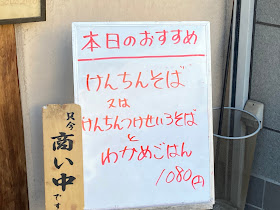 本日のおすすめ
けんちんそば
又は
けんちんつけせいろそば
と
わかめごはん
1080円
只今
商い中
です